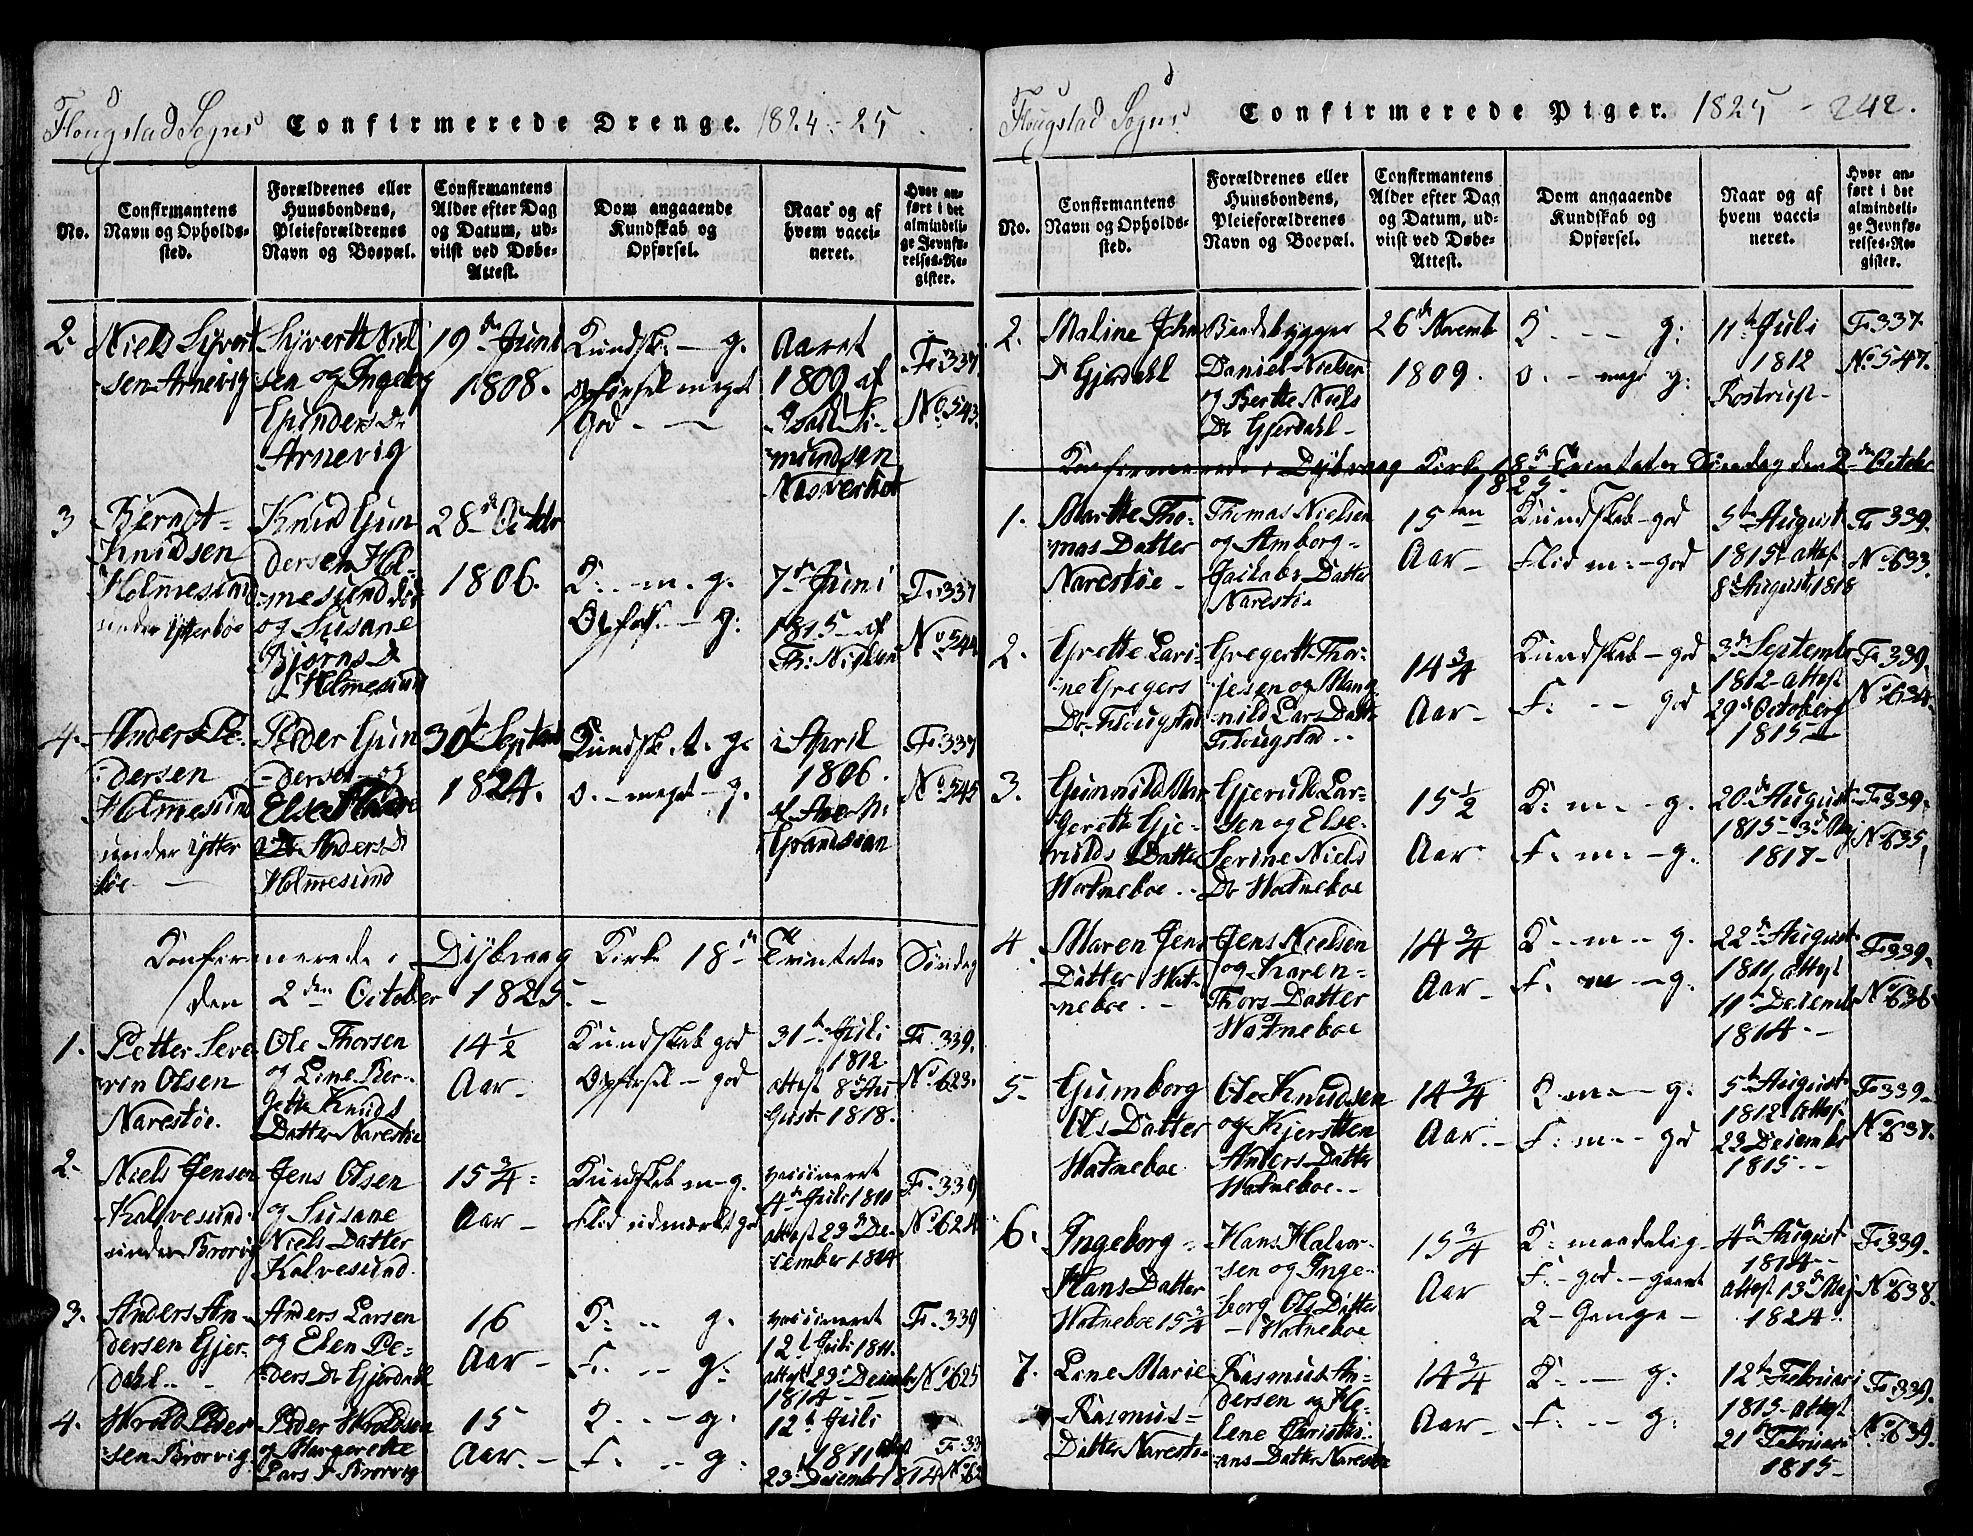 Flougstad Sogns Confirmerede Drenge. 1824-25
No.
Confirmantens
Navn og Opholds-
sted.
Forældrenes eller
Huusbondens,
Pleieforældrenes
Navn og Boepæl.
Confirmantens
Alder efter Dag
og Datum, ud-
viist ved Døbe-
Attest.
Dom angaaende
Kundskab og
Opførsel.
Naar og af
hvem vacci-
neret.
Hvor an-
ført i det
almindeli-
ge Jevnfø-
relses-Re-
gister.
2.
Niels Syvert
sen Arnevig
Syvertt Niel
sen og Ingebg
Gunders Dr
Arnevig
19de Juni
1808.
Kundsk: - g.
Opførsel meget
god - - -
Aaret
1809 af
Isak Si-
mundsen
Næsverket
Fr. 337
No. 543.
3
Berndt
Knudsen
Holmesund
under Ytterbøe
Knud Gun
dersen Hol-
mesund død
og Susane
Bjørns D
Holmesund
28de Octbr
1806.
K: - m. g.
Opførs. - g:
7de Juni
1815 af
Th: Nielsen
Fr: 337
No 544
4.
Anders Pe-
dersen
Holmesund
under Ytter
bøe -
Peder Gun
dersen og
Else
Anders D
Holmesund
30te Septbr
1824.
Kundsk. t. g.
O. - meget - g.
i April
1806.
af
Fr. 337
No. 545
Confirmerede i Dybvaag Kirke 18de Trinitatis Søndag
den 2den October 1825. -
1.
Petter Seve
rin Olsen
Narestøe.
Ole Thorsen
og Line Ber-
gette Knuds
Datter Narestøe
14 1/2
Aar -
Kundskab god
Opførsel - god
31te Juli
1812.
attest 8de Au-
gust 1818.
Fr. 339.
No. 623.
2.
Niels Jensen
Kalvesund
under Brorvig
Jens Olsen
og Susane
Niels Datter
Kalvesund.
15 3/4
Aar -
Kundskab m - g.
Flid udmærket god
vaccineret
4de Juli 1811
attest 23de De-
cember 1814
Fr. 339
No. 624
3.
Anders An-
dersen Gjer-
dahl.. -
Anders Larsen
og Elen Pe-
ders Dr Gjerdahl
16
Aar -
K: - - g.
F. - - g:
vaccineret
12te Juli 1811.
attest 23de Decemb
1814 - -
Fr. 339
No. 625
4.
Wrold Peder
sen Brorvig.
Peder Wroldsen
og Margrette
Lars D Brorvig
15
Aar. -
K - - - g.
F. - - g.
12te Juli
1811 attest
23de Decembr 1814
Fr. 33
No 62
Flougstad Sogns Confirmerede Piger. 1825 - 242.
No.
Confirmantens
Navn og Opholds-
sted.
Forældrenes eller
Huusbondens,
Pleieforældrenes
Navn og Boepæl.
Confirmantens
Alder efter Dag
og Datum, ud-
viist ved Døbe-
Attest.
Dom angaaende
Kundskab og
Opførsel.
Naar og af
hvem vacci-
neret.
Hvor an-
ført i det
almindeli-
ge Jevnfø-
relses-Re-
gister.
2.
Maline
D Gjerdahl
Baadsbygger
Daniel Nielsen
og Berthe Niels
Dr Gjerdahl -
26de Novemb
1809.
K - - g:
O. - meget g:
11te Juli
1812
Rostrup -
Fr. 337.
No. 547.
Confirmerede i Dybvaag Kirke 18de Trinitatis Søndag den 2den October
1825.
1.
Marthe Tho-
mas Datter
Narestøe -
Thomas Nielsen
og Amborg
Jacobs Datter
Narestø -
15ten
Aar -
Kundskab - god
Flid m: - god
5te August
1815 attest
8de August 1818
Fr 339.
No. 633.
2.
Grette Cari-
ne Gregers
Dr. Flougstad
Gregertt Thor-
jesen og Mang-
nild Lars Datt
Flougstad - -
14 3/4
Aar -
Kundskab - god
F: - - god
3de Septembr
1812 attest
29de October
1815 -
Fr. 339.
No. 634.
3.
Gunnild Mar
gerette Gje-
rulds Datter
Watneboe. -
Gjeruld Lar-
sen og Else
Serine Niels
Dr Watneboe
15 1/2
Aar
K: m. - g.
F. m. - g.
20de August
1815 - 3de Maj
1817 -
Fr. 339.
No. 635.
4.
Maren Jens
Datter Wat-
neboe. -
Jens Nielsen
og Karen
Thors Datter
Watneboe
14 3/4
Aar -
K - - m - g.
F. m - g.
22de August
1811, attest
11te Decemb
1814. -
Fr. 339.
No. 636
5.
Gumborg
Ols Datter
Watneboe.
Ole Knudsen
og Kjerstten
Anders Datter
Watneboe. -
14 3/4
Aar. -
K - m - - g.
F: m - - god
5te August
1812 Attest
23de Decembr
1815 - -
Fr. 339.
No. 637.
6.
Ingeborg
Hans Datter
Watneboe 15 3/4
Hans Halvor-
sen og Inge-
borg Ols Datter
- Watneboe
15 3/4
Aar
K: maadelig -
F. - god. -
2 Gange -
4de August
1814 -
attest 13de Maj
1824.
Fr. 339.
No. 638.
7.
Line Marie
Rasmus
Datter Narestø -
Rasmus An-
dersen og He-
lene Christi-
ans Datter Narestøe
14 3/4
Aar -
K - - - g:
F. - - g:
12te Februari
1815 - attest
21de Februari
1815 -
Fr. 339.
No. 639.